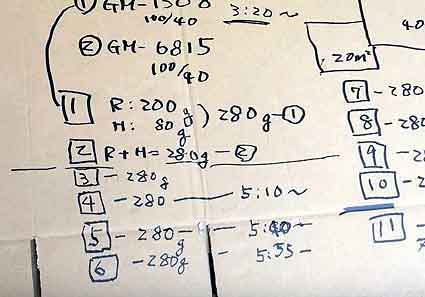 ① GM-1500
100/40 3:20~
② GM-6815
100/40
1 R: 200g
H: 80g ) 280g-①
2 R+H=280g-②
3 - 280g
4 - 280 — 5:10~
5 - 280g - 5:40~
6 - 280g - 5:55-
40
20m²
7 - 280
8 - 280
9 - 2
10 - 2
11 -